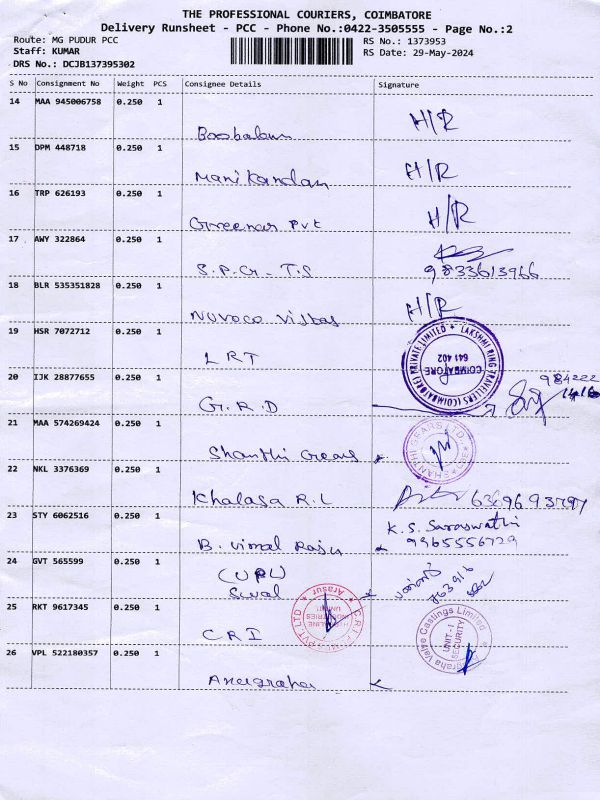 THE PROFESSIONAL COURIERS, COIMBATORE
Delivery Runsheet - PCC - Phone No.:0422-3505555 - Page No.:2
Route: MG PUDUR PCC
RS No.: 1373953
Staff: KUMAR
RS Date: 29-May-2024
DRS No.: DCJB137395302
S No Consignment No Weight PCS Consignee Details Signature
14 MAA 945006758 0.250 1
Boobalan H/R
15 DPM 448718 0.250 1
Manikandan H/R
16 TRP 626193 0.250 1
Greenar Pvt H/R
17 AWY 322864 0.250 1
S.P.G - T.S 9833613966
18 BLR 535351828 0.250 1
Nuvoco Vistas H/R
19 HSR 7072712 0.250 1
LRT
LAKSHMI RING TRAVELLERS (COIMBATORE) PRIVATE LIMITED
COIMBATORE
641 402
20 IJK 28877655 0.250 1
G.R.D 984222
21 MAA 574269424 0.250 1
Shanthi Gears
SHANTHI GEARS LTD.
22 NKL 3376369 0.250 1
Khalasa R.L
23 STY 6062516 0.250 1
B. Vimal Raju K.S. Saraswathi
9965556729
24 GVT 565599 0.250 1
(UPL)
25 RKT 9617345 0.250 1
CRI
Arasur
26 VPL 522180357 0.250 1
Anugraha
Anugraha Valve Castings Limited
UNIT-1
SECURITY